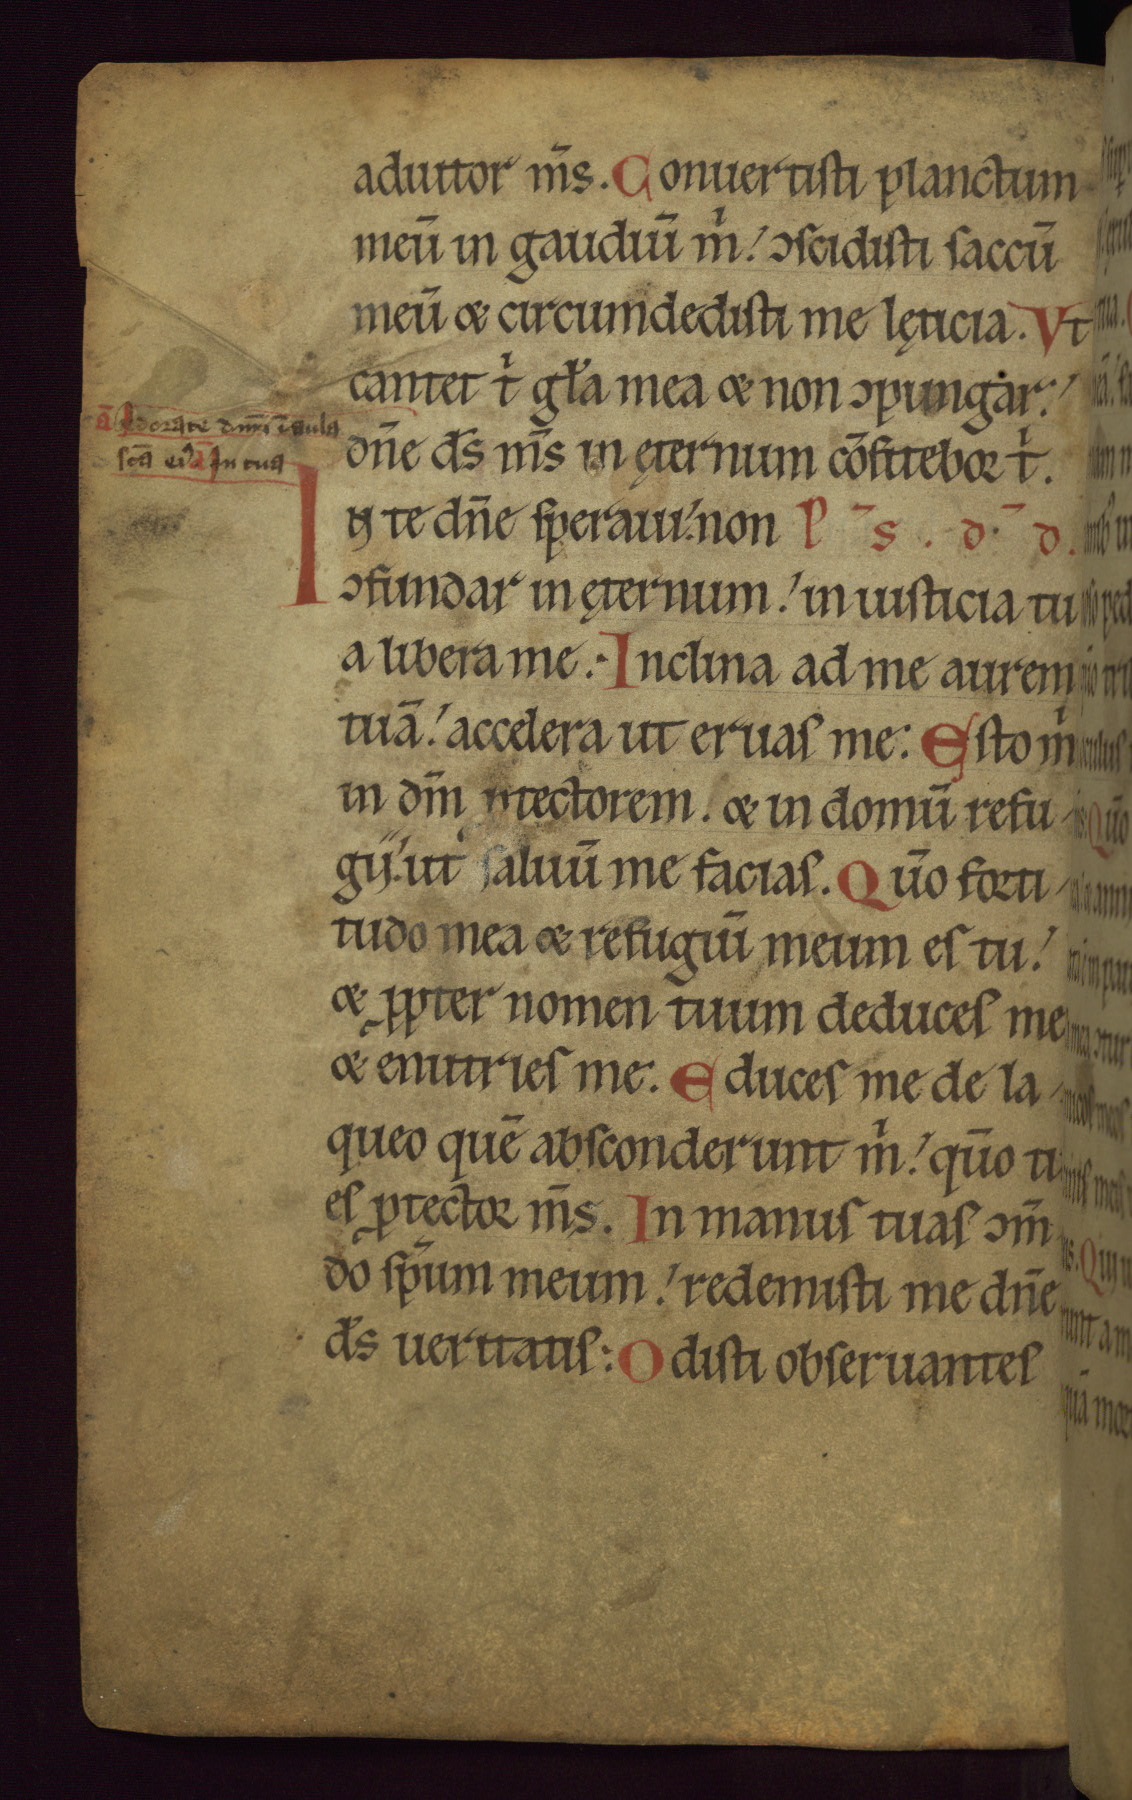 adiutor m̄s. Conuertisti planctum
meū in gaudiū m̍! ɔscidisti saccū
meū & circumdedisti me lęticia. Vt
cantet t̍ gła mea & non ɔpungar!
ā Adorate dnm̄ ī aula
dn̄e ds̄ m̄s in ęternum cōfitebor t̍.
sc̄a ei᾽ ā In tua
IN te dn̄e speraui! non P̄S. D̄. D.
ɔfundar in ęternum! in iusticia tu
a libera me. Inclina ad me aurem
tuā! accelera ut eruas me. Esto m̍
in dm̄ ꝓtectorem. & in domū refu-
gij! ut saluū me facias. Qūo forti-
tudo mea & refugiū meum es tu!
& ꝓpter nomen tuum deduces me
& enutries me. Educes me de la-
queo quē absconderunt m̍! qūo tu
es ꝓtector m̄s. In manus tuas ɔm̄
do sp̄um meum! redemisti me dn̄e
ds̄ ueritatis: Odisti obseruantes